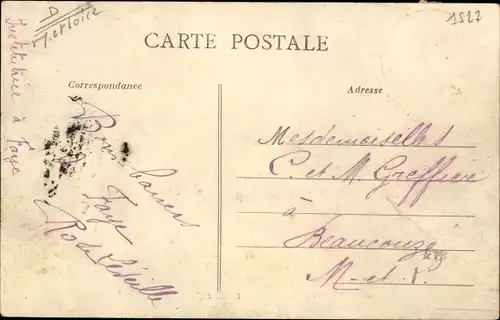 D
M. et Loire
1527
CARTE POSTALE
Correspondance
Adresse
Institutrice à Faye
Bons baisers
Faye
Mesdemoiselles
C. et M. Greffier
à
Beaucouzé
M-et-L